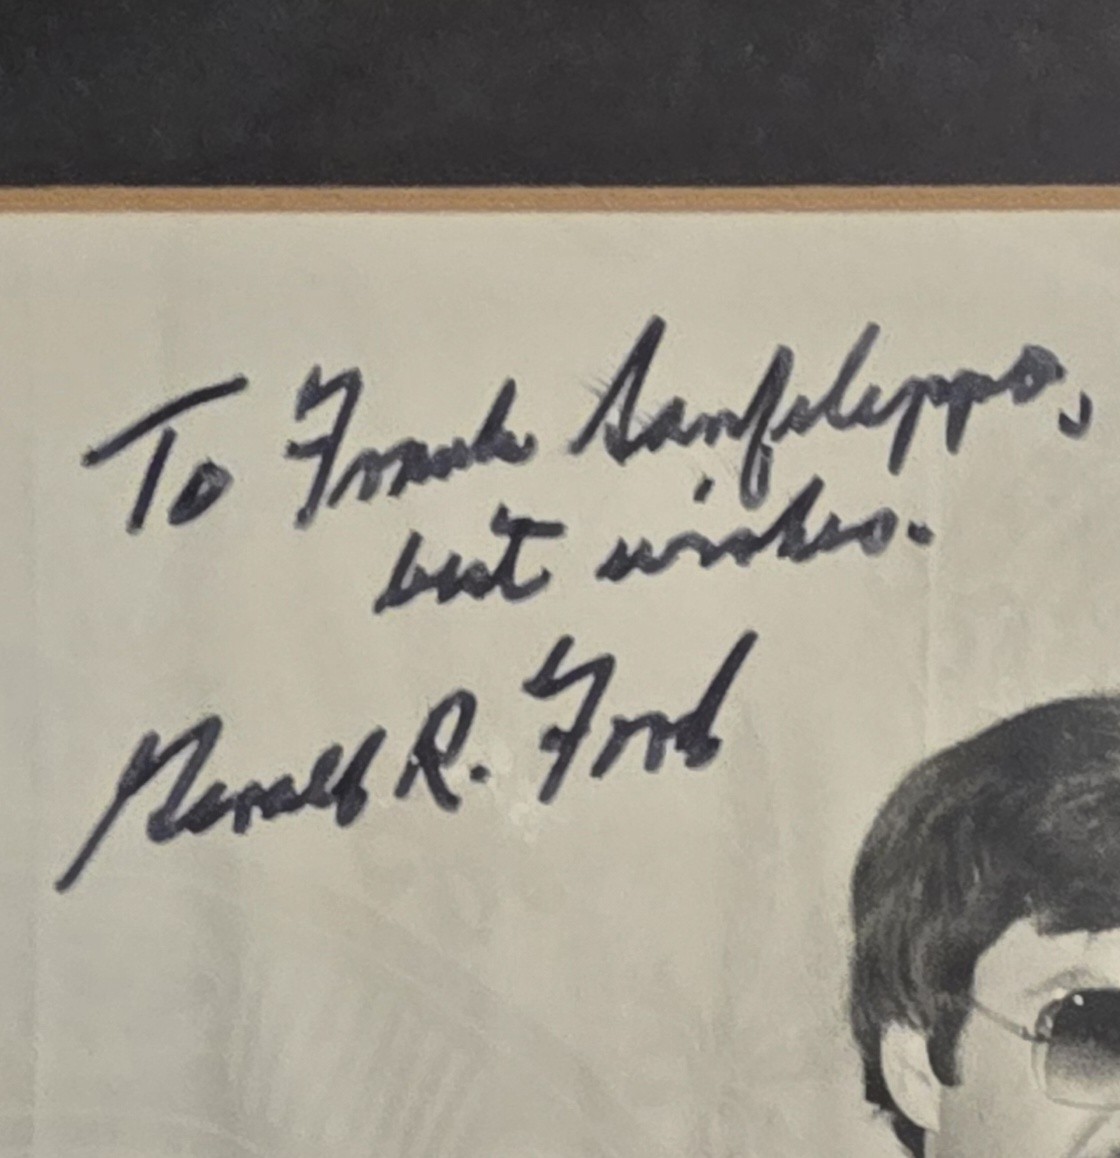 To Frank Sanfilippo,
best wishes.
Gerald R. Ford